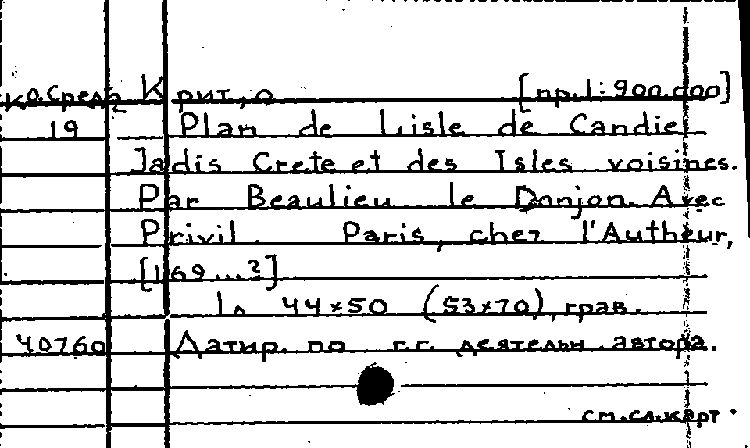 К.О.Средз Крит, о [пр.1:900.000]
19 Plan de Lisle de Candie
Jadis Crete et des Isles voisines.
Par Beaulieu le Donjon. Avec
Privil. Paris, chez l'Autheur,
[169...?]
1л 44×50 (53×70), грав.
40760 Датир. по г.г. деятельн. автора.
см.сл.карт.